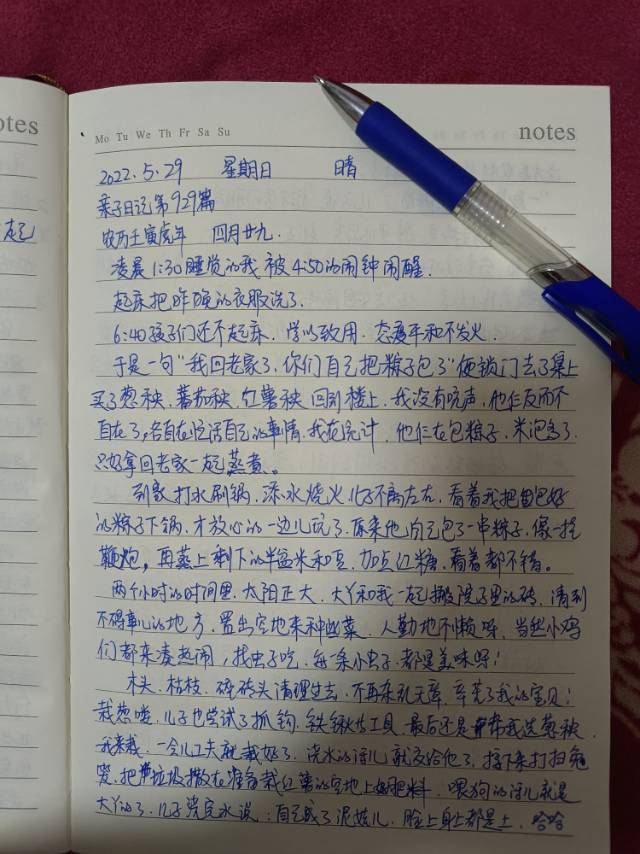 otes
Mo Tu We Th Fr Sa Su
notes
2022.5.29 星期日 晴
亲子日记第929篇
农历壬寅虎年 四月廿九.
凌晨1:30睡觉的我被4:50的闹钟闹醒.
起床把昨晚的衣服洗了.
6:40孩子们还不起床. 学以致用. 态度平和不发火.
于是一句"我回老家了,你们自己把粽子包了"便锁门去了集上
买了葱秧.蕃茄秧.红薯秧回到楼上.我没有吭声.他仨反而不
自在了,各自在忙活自己的事情.我在洗汁.他仨在包粽子.米泡多了.
只好拿回老家一起蒸煮。
到家打水刷锅.添水烧火儿子不离左右.看着我把包好
的粽子下锅.才放心的一边儿玩了.原来他自己包了一串粽子.像一挂
鞭炮,再蒸上剩下的半盆米和豆,加点红糖,看着都不错。
两个小时的时间里.太阳正大.大丫和我一起搬院子里的砖.清到
不碍事儿的地方.置出空地来种蔬菜.人勤地不懒呀.当然小鸡
们都来凑热闹,找虫子吃.每一条小虫子.都是美味呀!
木头.枯枝.碎砖头清理过去.不再杂乱无章.辛苦了我的宝贝!
栽葱喽.儿子也尝试了抓钩.铁锹等工具.最后还是帮我送葱秧
我来栽.一会儿工夫就栽好了.浇水的活儿就交给他了.接下来打扫兔
窝.把垃圾撒在准备栽红薯的空地上好肥料.喂狗的活儿就是
大丫的了.儿子浇完水说:自己成了泥娃儿.脸上身上都是土.哈哈
起